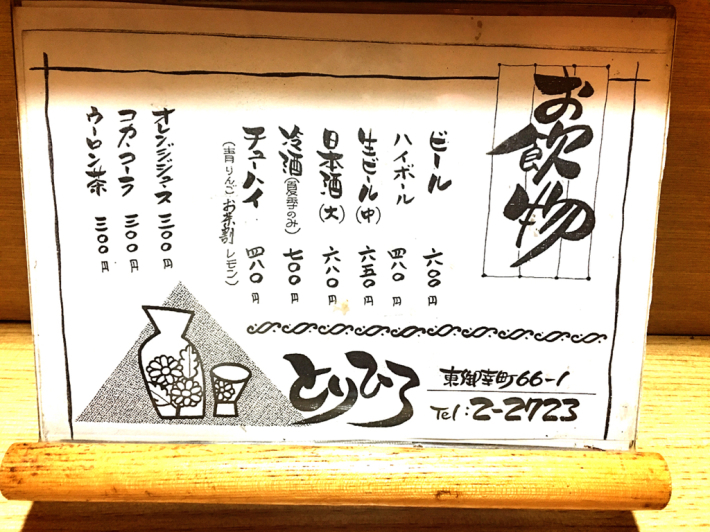 お飲物
ビール 六〇〇円
ハイボール 四八〇円
生ビール(中) 六五〇円
日本酒(大) 六八〇円
冷酒(夏季のみ) 七〇〇円
チューハイ 四八〇円
(青りんご お茶割 レモン)
オレンジジュース 三〇〇円
コカ・コーラ 三〇〇円
ウーロン茶 三〇〇円
とりひろ
東御幸町66-1
Tel:2-2723